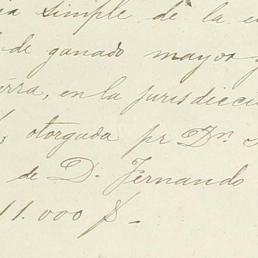 simple de la e
de ganado mayor y
erra, en la jurisdicci
otorgada pr Dn.
de D. Fernando
11.000 $.-